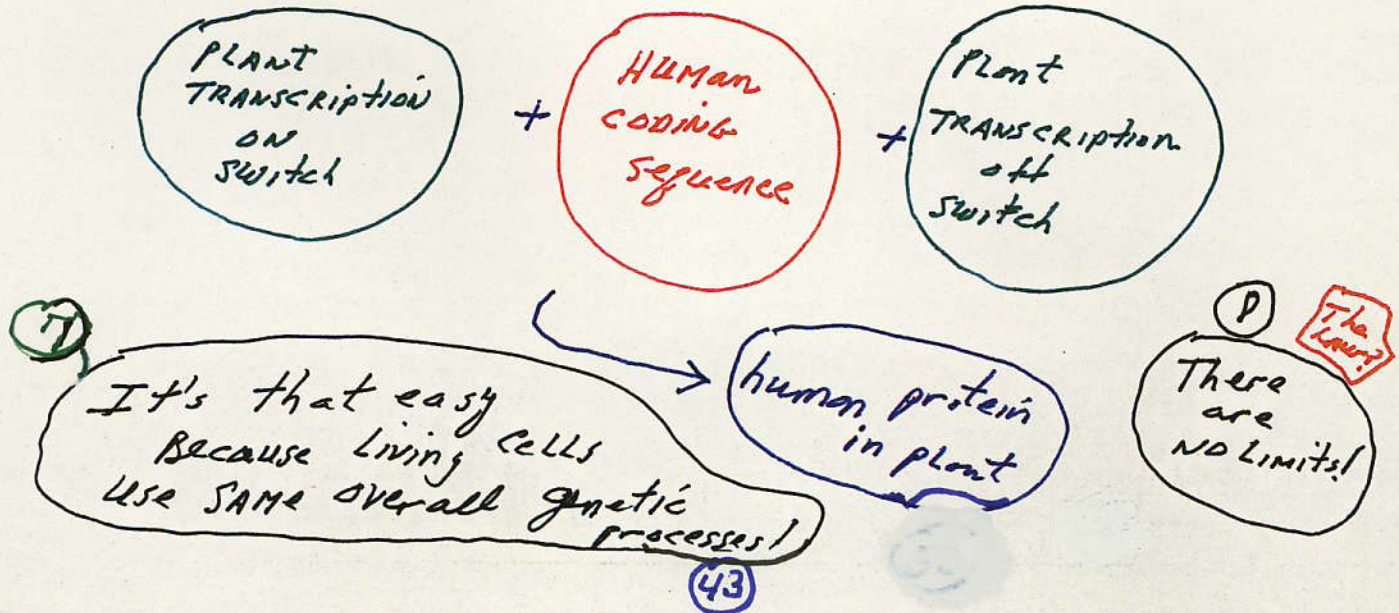 PLANT
TRANSCRIPTION
ON
SWITCH
+
HUMAN
CODING
Sequence
+
PLant
TRANSCRIPTION
off
switch
It's that easy
Because Living cells
Use SAME overall genetic
processes!
human protein
in plant
P
The
There
are
NO LIMITS!
43